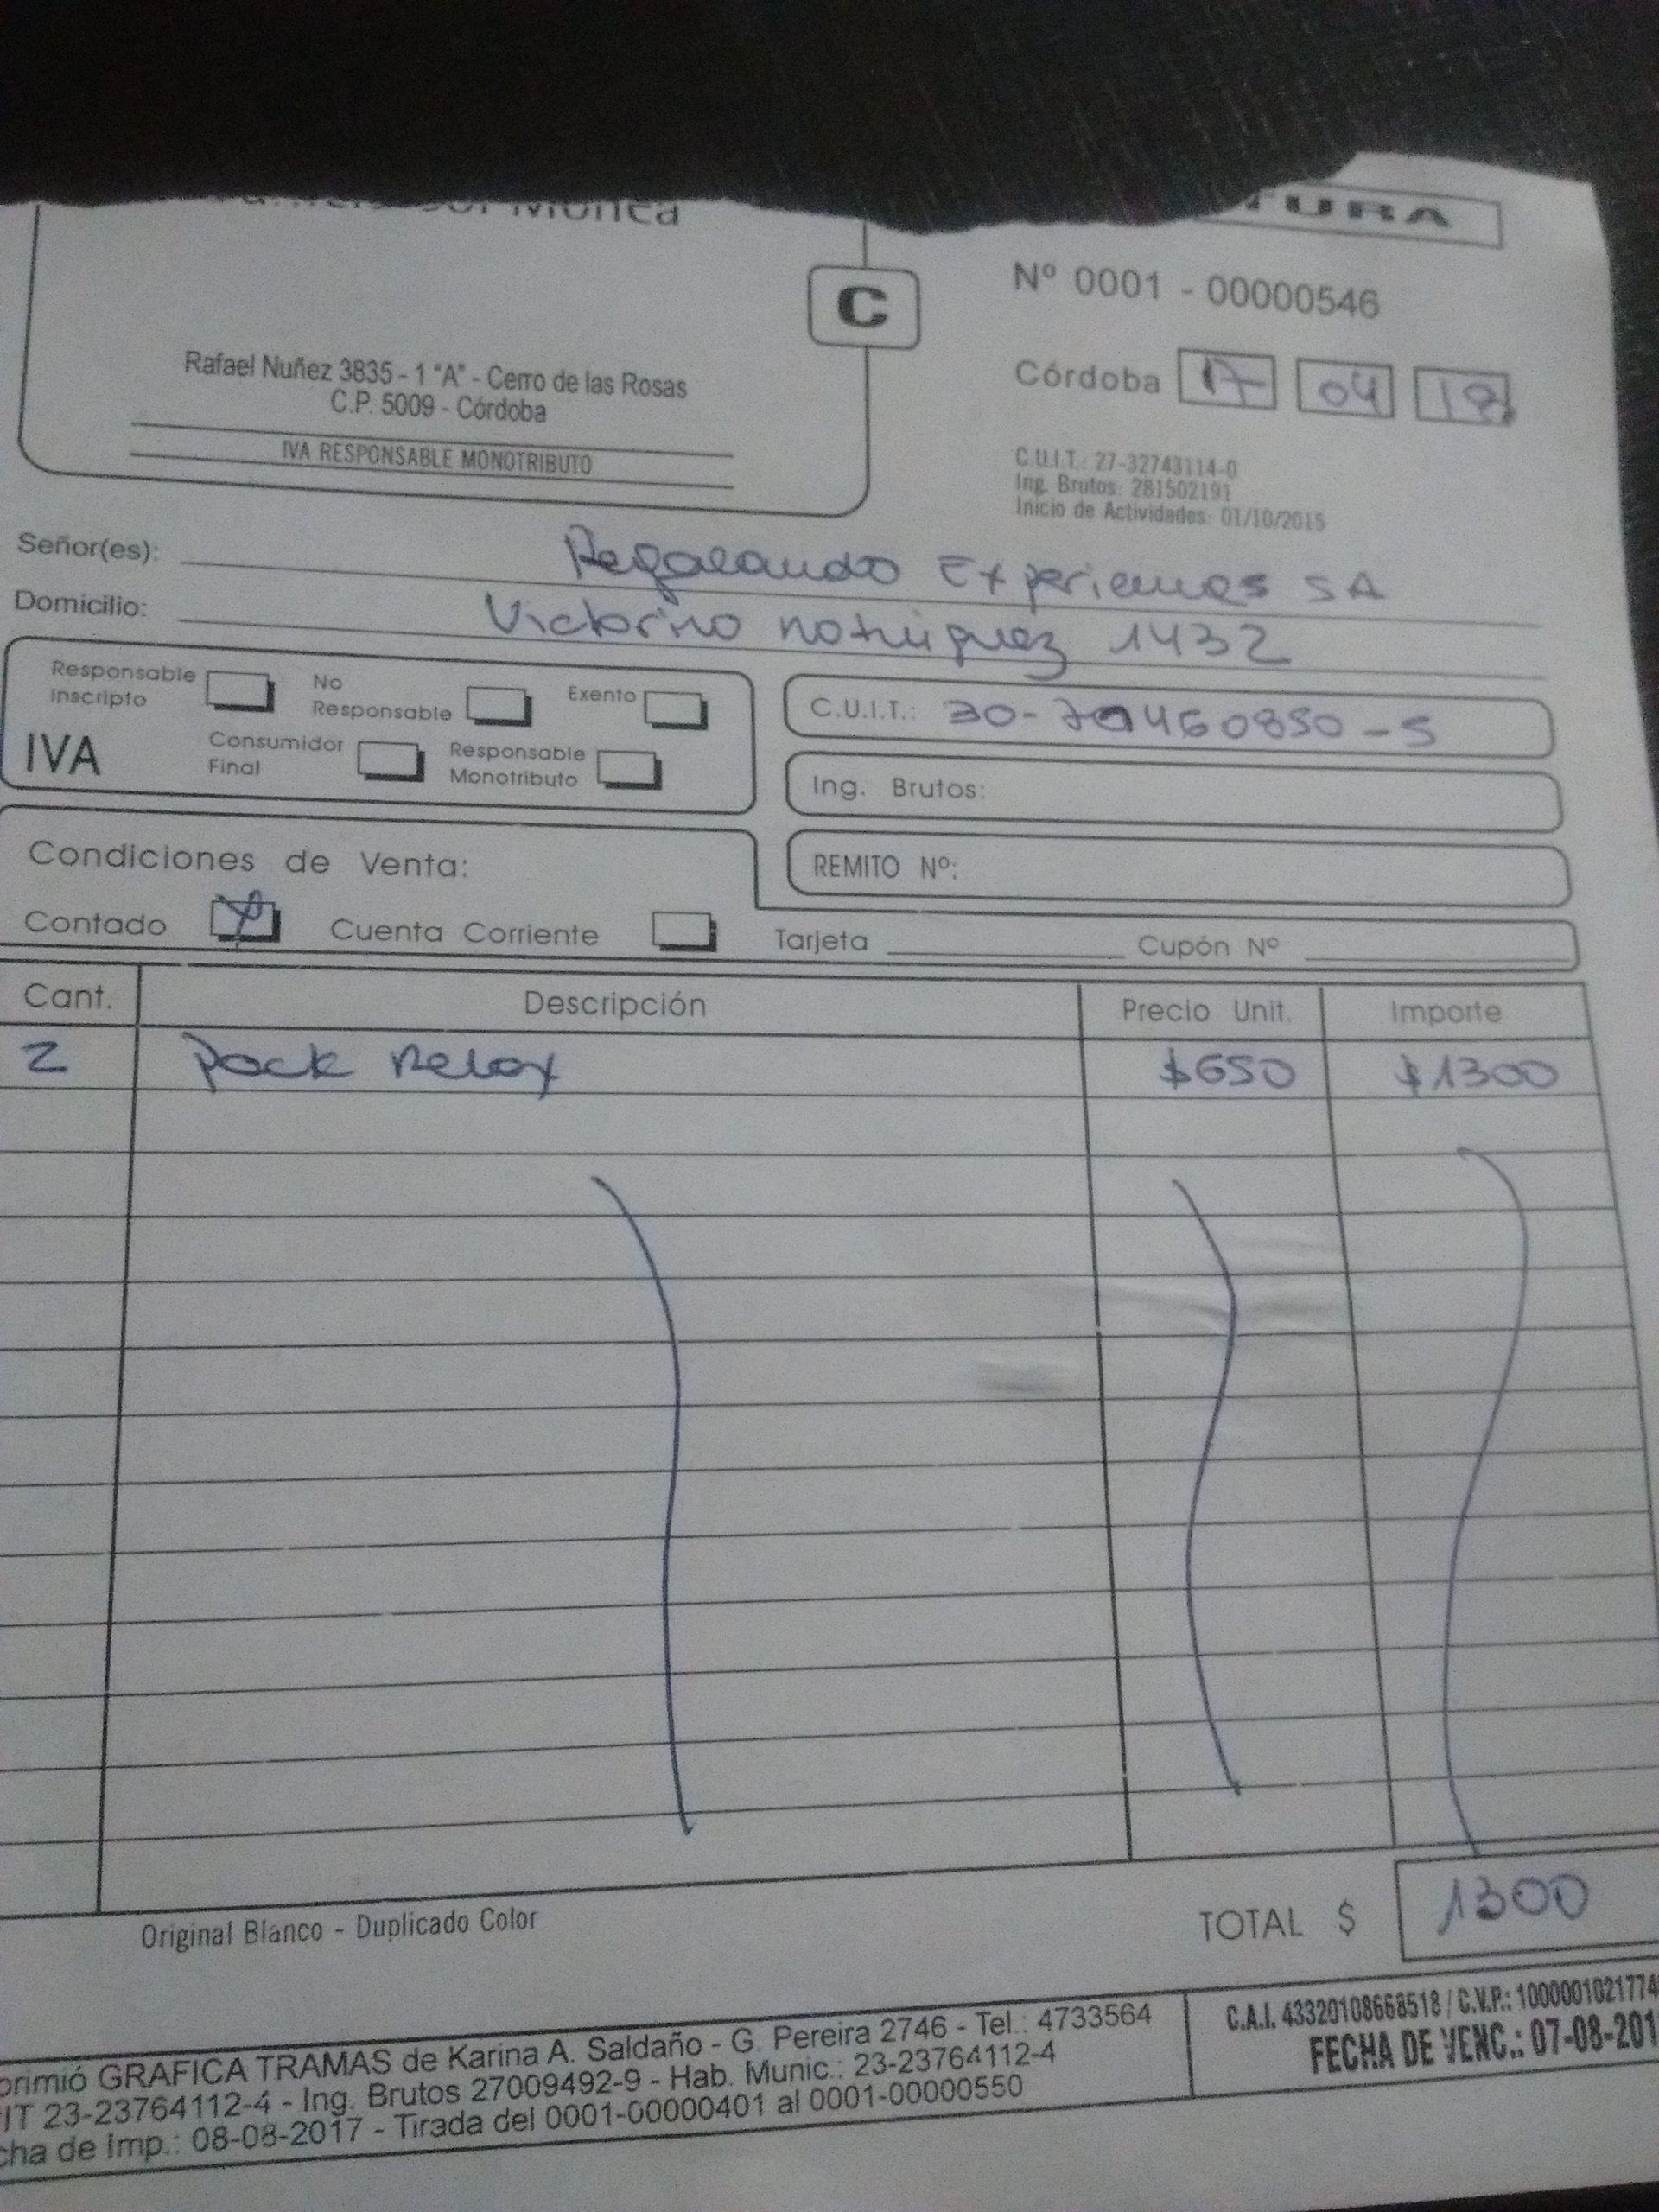 Monica
TURA
C
Nº 0001 - 00000546
Rafael Nuñez 3835 - 1 "A" - Cerro de las Rosas
C.P. 5009 - Córdoba
IVA RESPONSABLE MONOTRIBUTO
Córdoba 17 04 18
C.U.I.T.: 27-32743114-0
Ing. Brutos: 281502191
Inicio de Actividades: 01/10/2015
Señor(es): Regalando Experiencias SA
Domicilio: 1432
Responsable Inscripto
No Responsable
Exento
IVA
Consumidor Final
Responsable Monotributo
C.U.I.T.:
Ing. Brutos:
REMITO Nº:
Condiciones de Venta:
Contado X Cuenta Corriente Tarjeta Cupón Nº
Cant. Descripción Precio Unit. Importe
2 Pack Relax $650 $1300
Original Blanco - Duplicado Color
TOTAL $ 1300
primió GRAFICA TRAMAS de Karina A. Saldaño - G. Pereira 2746 - Tel.: 4733564
IT 23-23764112-4 - Ing. Brutos 27009492-9 - Hab. Munic.: 23-23764112-4
cha de Imp.: 08-08-2017 - Tirada del 0001-00000401 al 0001-00000550
C.A.I. 43320108668518 / C.V.P.: 1000001021774
FECHA DE VENC.: 07-08-201